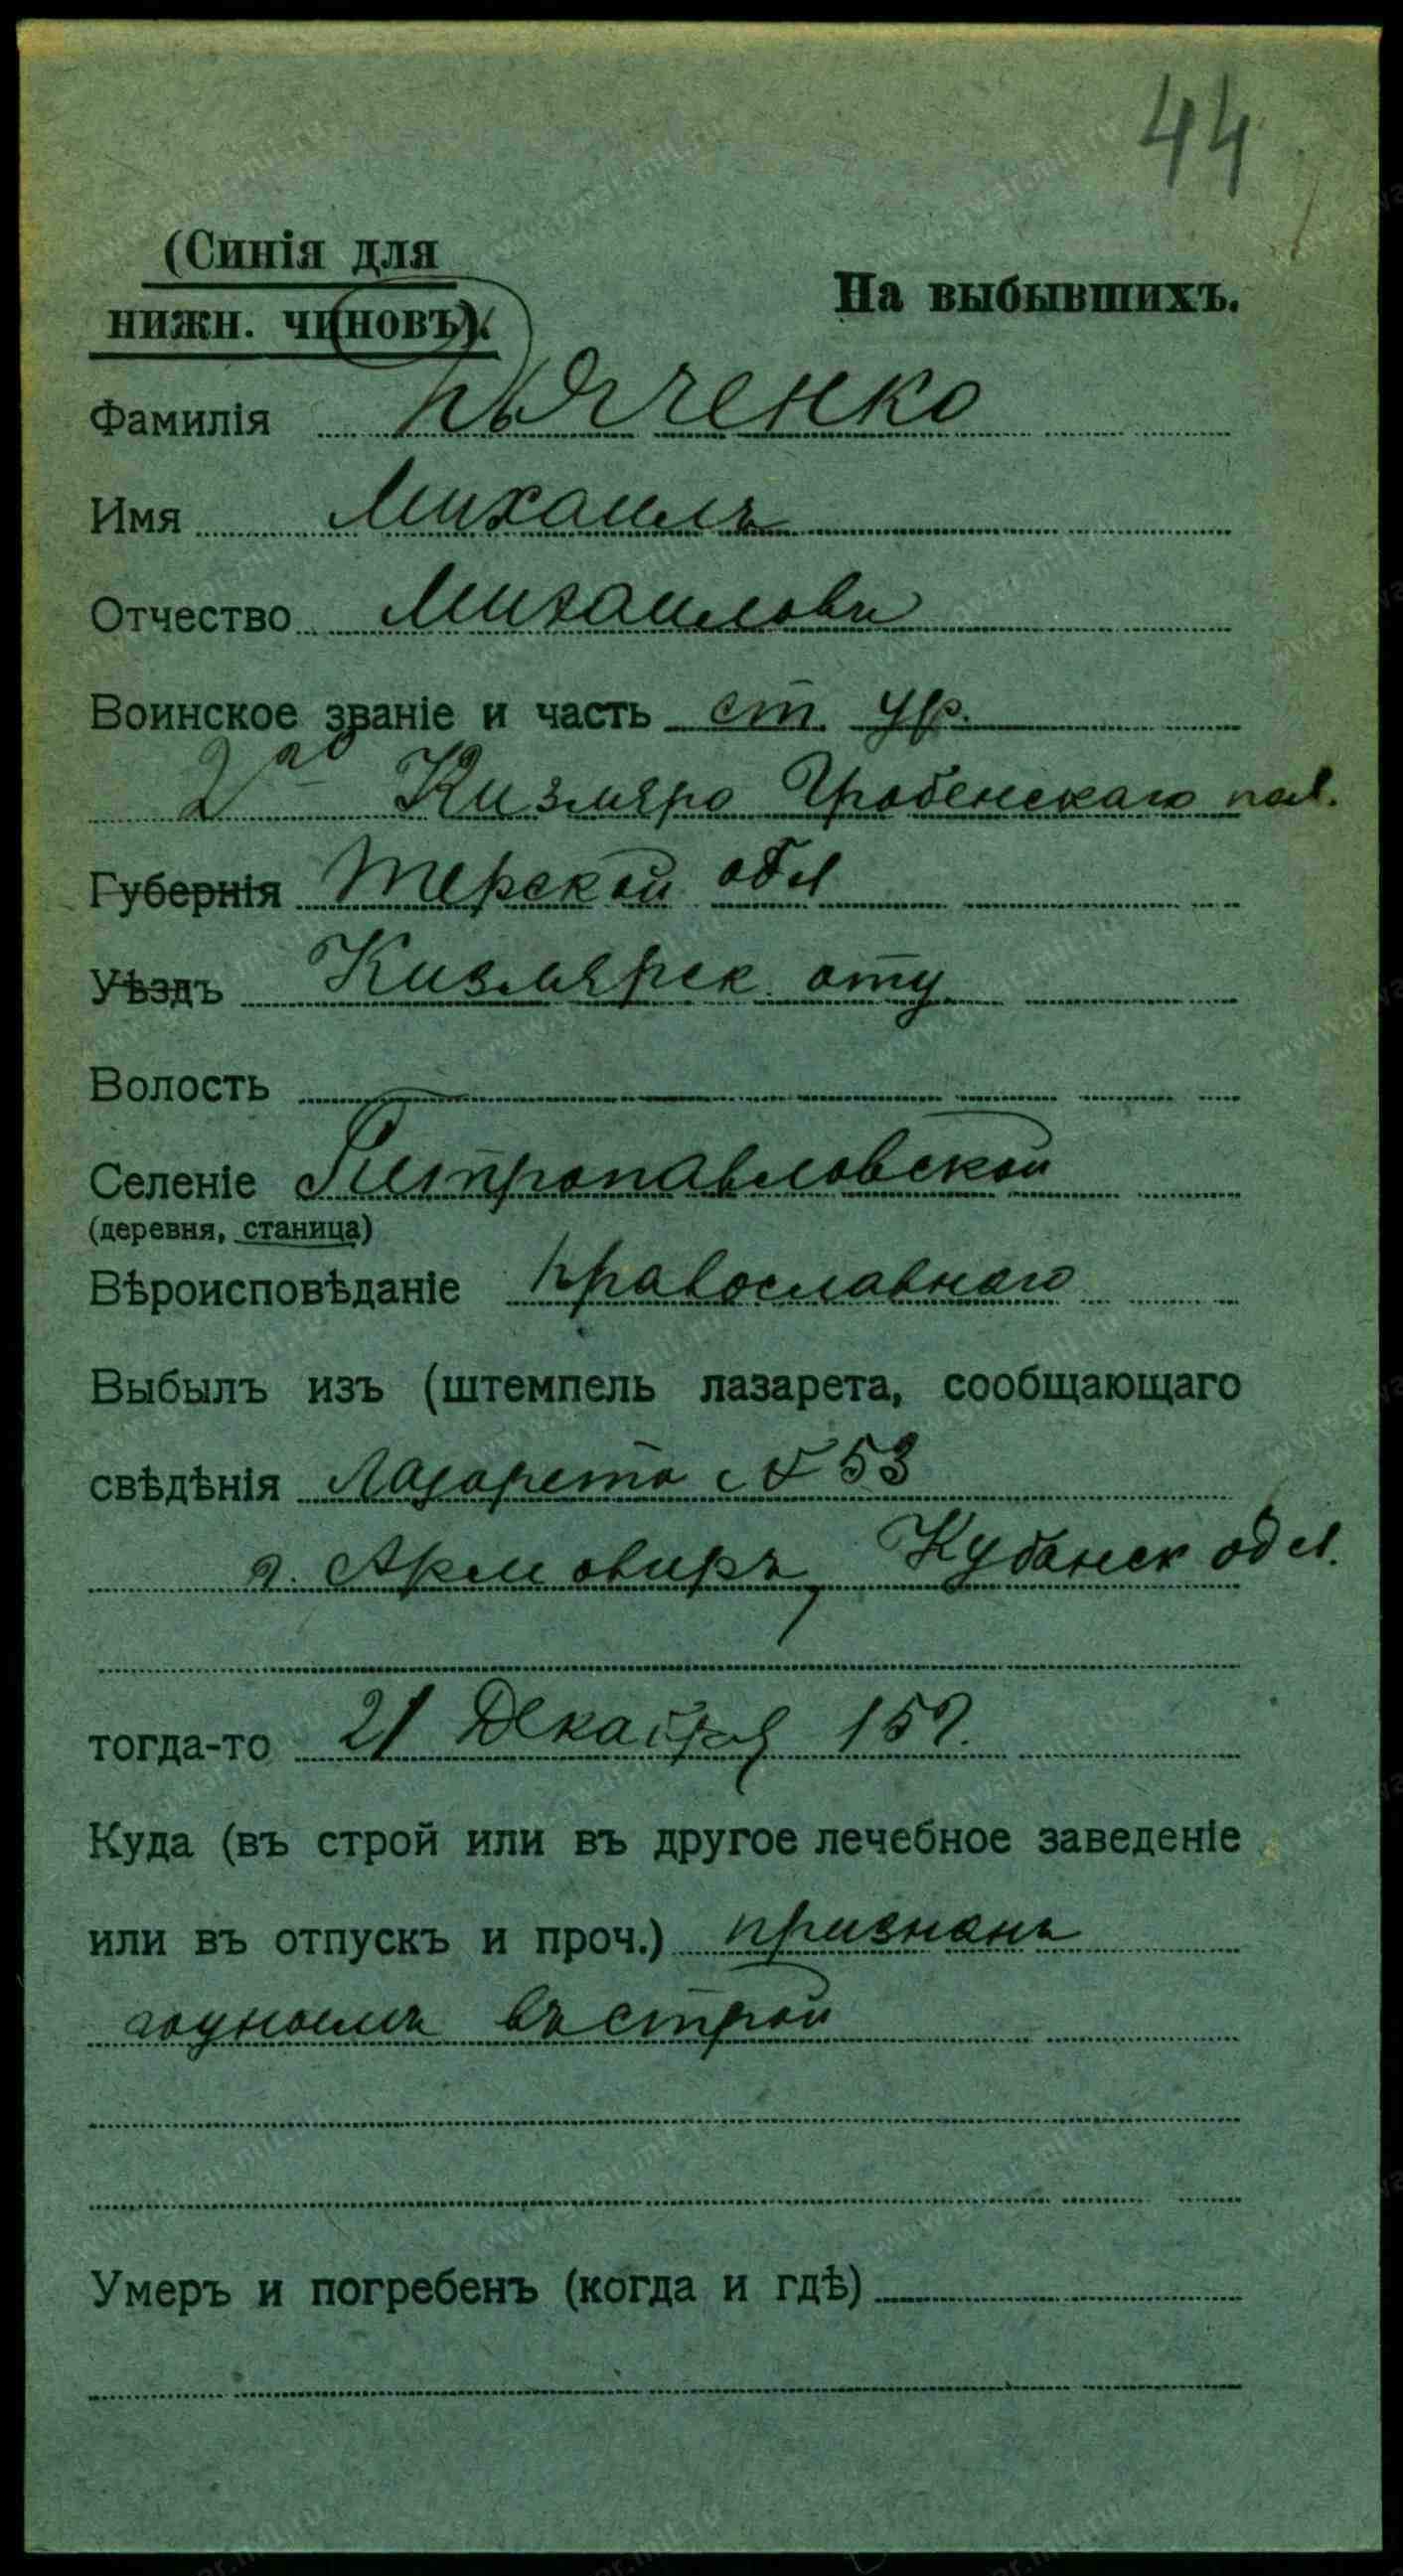 44
(Синія для
нижн. чиновъ).
На выбывшихъ.
Фамилія Пьяченко
Имя Михаилъ
Отчество Михаилови
Воинское званіе и часть ст. ур.
2го Кизляро Гребенскаго пол.
Губернія Терской обл
Уѣздъ Кизлярск. отд
Волость
Селеніе Питропавловской
(деревня, станица)
Вѣроисповѣданіе православнаго
Выбылъ изъ (штемпель лазарета, сообщающаго
свѣдѣнія Лазарета № 53
г. Армовиръ, Кубанск обл.
тогда-то 21 Декабря 15г.
Куда (въ строй или въ другое лечебное заведеніе
или въ отпускъ и проч.) признанъ
годнымъ въ строй
Умеръ и погребенъ (когда и гдѣ)